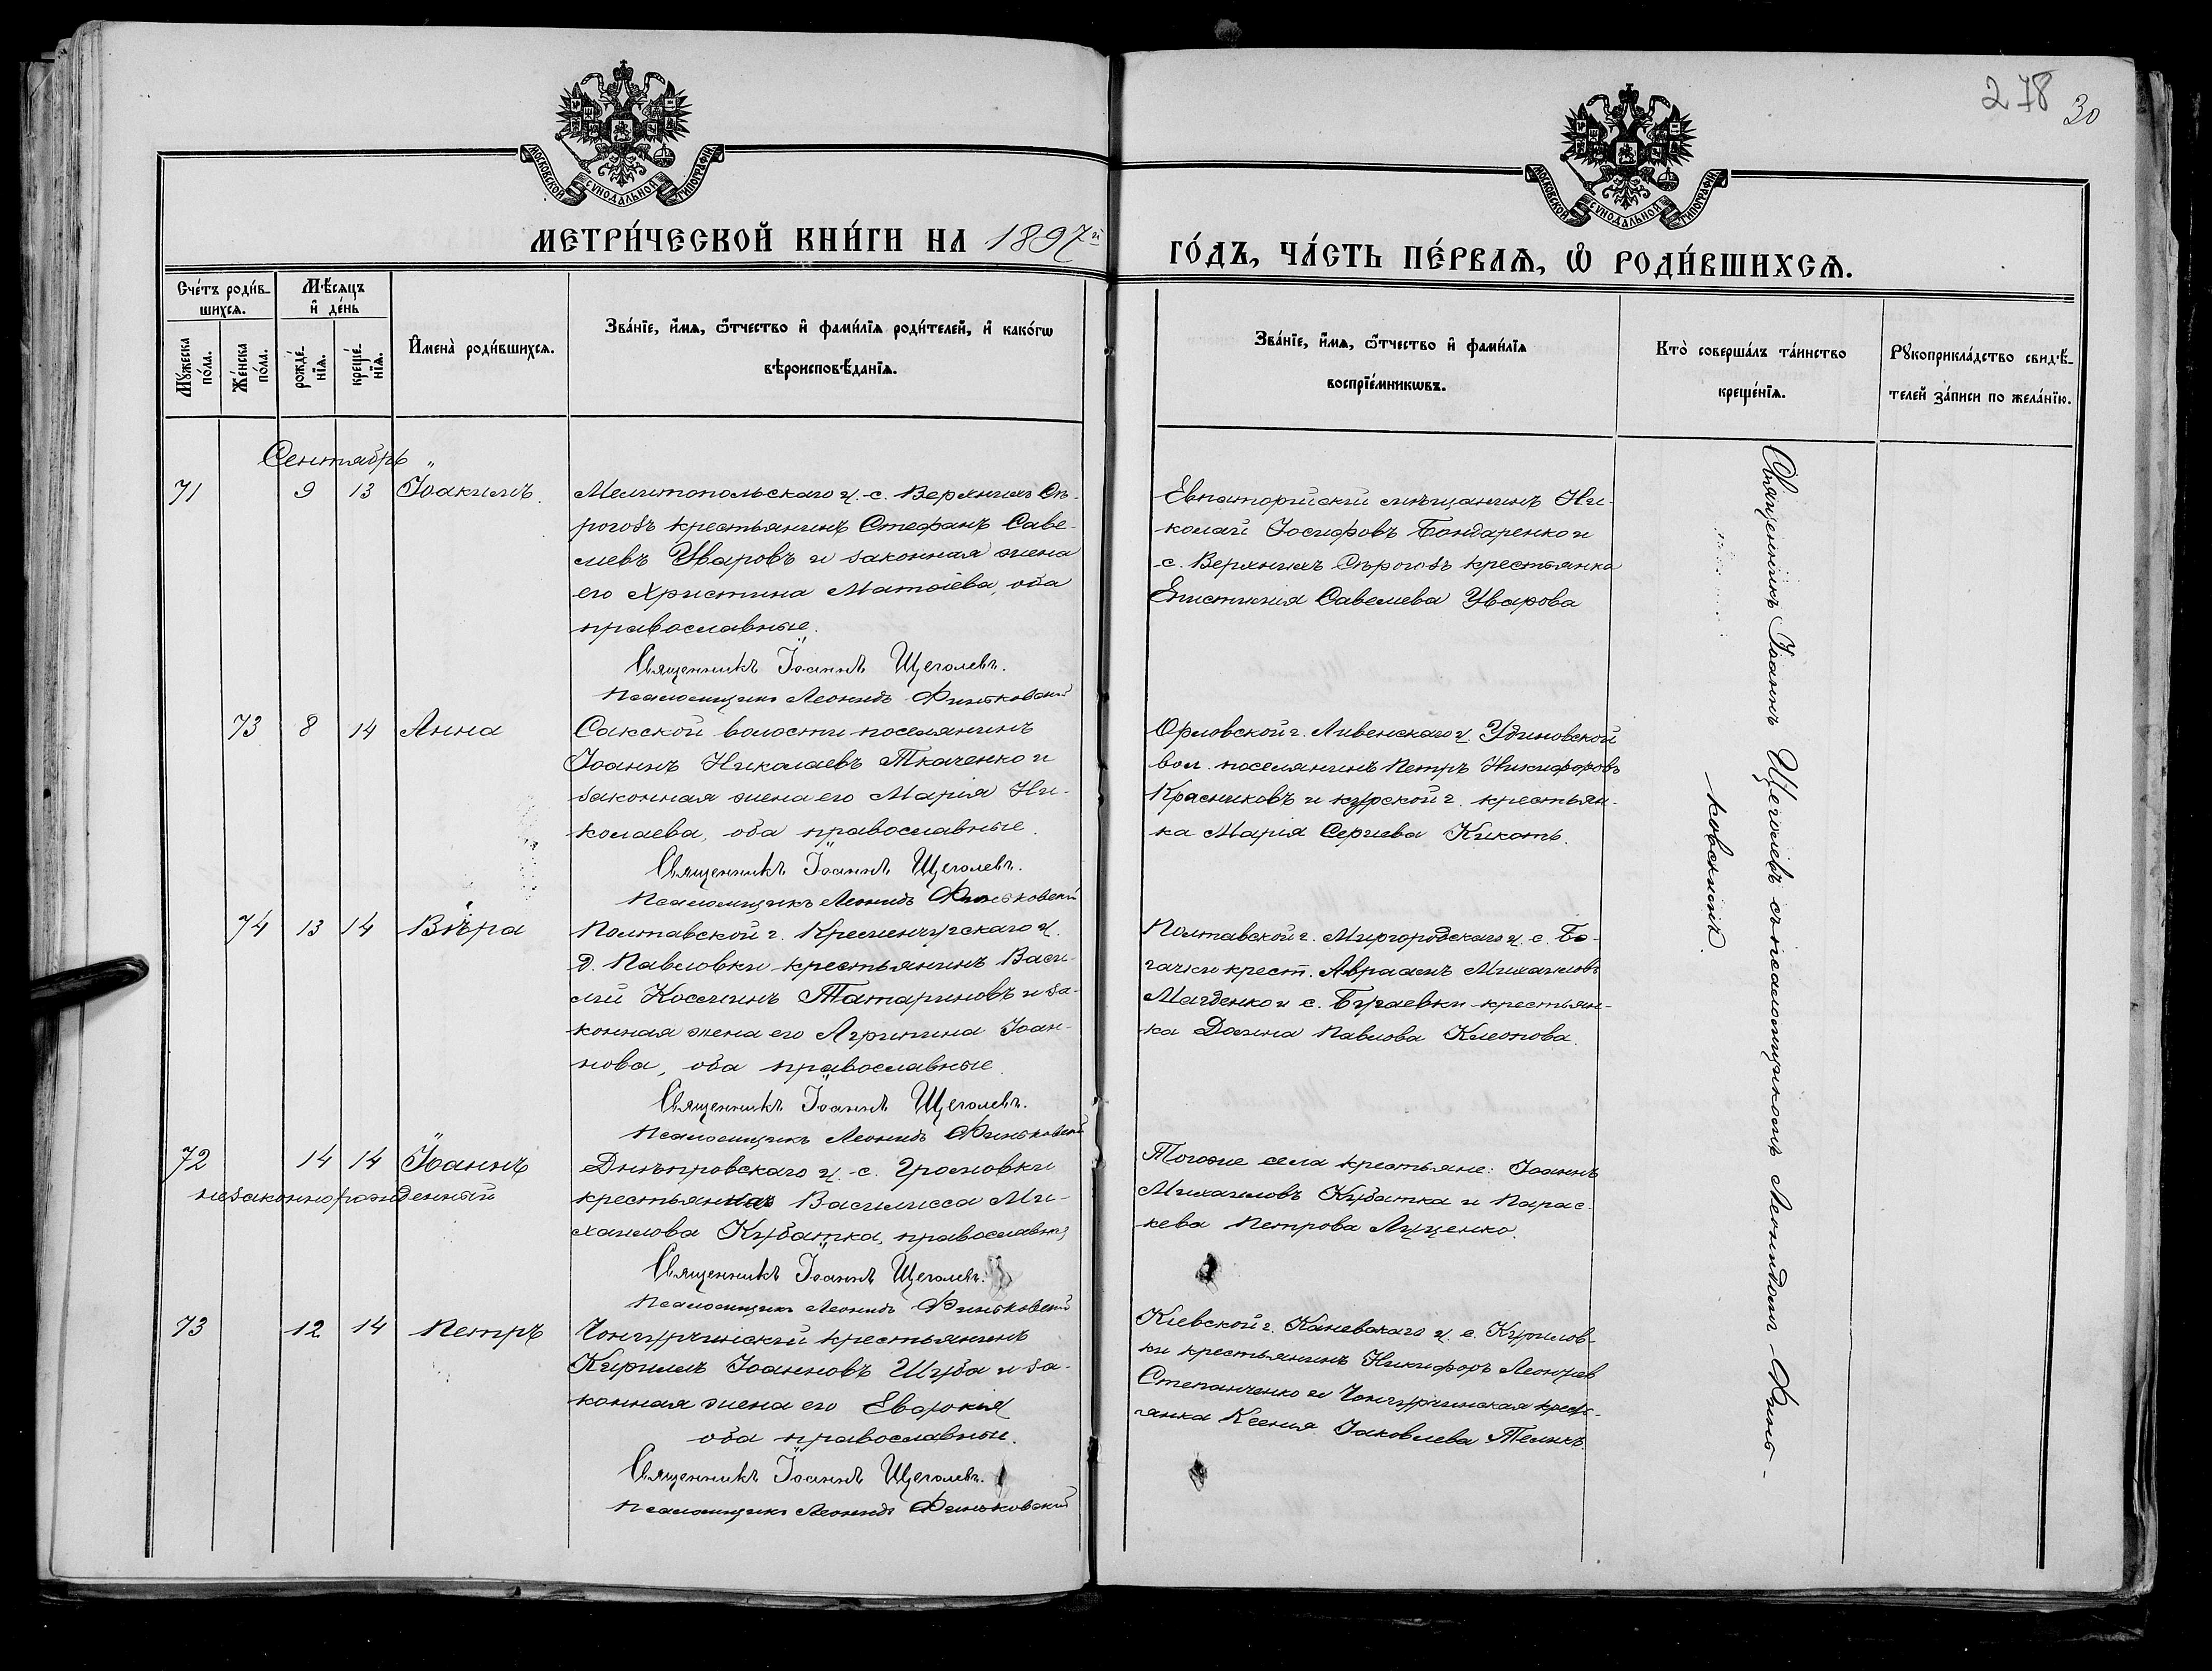 278 30
МОСКОВСКОЙ СѴНОДАЛЬНОЙ ТИПОГРАФІИ
МОСКОВСКОЙ СѴНОДАЛЬНОЙ ТИПОГРАФІИ
МЕТРИ́ЧЕСКОЙ КНИ́ГИ НА 1897й
ГО́ДЪ, ЧА́СТЬ ПЕ́РВАѦ, Ѡ҆ РОДИ́ВШИХСѦ.
Сче́тъ роди́в-
шихсѧ.
Мꙋ́жеска
по́ла.
Же́нска
по́ла.
Мѣ́сѧцъ
и҆ де́нь
рожде́-
нїѧ.
креще́-
нїѧ.
И҆мена̀ роди́вшихсѧ.
Зва́нїе, и҆́мѧ, ѻ҆́тчество и҆ фами́лїѧ роди́телей, и҆ како́гѡ
вѣроисповѣ́данїѧ.
Зва́нїе, и҆́мѧ, ѻ҆́тчество и҆ фами́лїѧ
воспрїе́мникѡвъ.
Кто̀ соверша́лъ та́инство
креще́нїѧ.
Рꙋкоприкла́дство свидѣ́-
телей за́писи по жела́нїю.
Сентябрь
71 9 13 Іоакимъ.
Мелитопольскаго у. с. Верхнихъ Сѣ-
рогозъ крестьянинъ Стефанъ Саве-
льевъ Уваровъ и законная жена
его Христина Матѳіева, оба
православные.
Священникъ Іоаннъ Щеголевъ.
Псаломщикъ Леонидъ Финьковскій
Евпаторійскій мѣщанинъ Ни-
колай Іосифовъ Бондаренко и
с. Верхнихъ Сѣрогозъ крестьянка
Епистинія Савельева Уварова
73 8 14 Анна
Сакской волости поселянинъ
Іоаннъ Николаевъ Ткаченко и
законная жена его Марія Ни-
колаева, оба православные.
Священникъ Іоаннъ Щеголевъ.
Псаломщикъ Леонидъ Финьковскій
Орловской г. Ливенскаго у. Удиновской
вол. поселянинъ Петръ Никифоровъ
Красниковъ и курской г. крестьян-
ка Марія Сергіева Кикоть.
74 13 14 Вѣра
Полтавской г. Кременчугскаго у.
д. Павловки крестьянинъ Васи-
лій Косминъ Татариновъ и за-
конная жена его Агрипина Іоан-
нова, оба православные.
Священникъ Іоаннъ Щеголевъ.
Псаломщикъ Леонидъ Финьковскій
Полтавской г. Миргородскаго у. с. Бо-
гачки крест. Авраамъ Михаиловъ
Магденко и с. Бугаевки крестьян-
ка Домна Павлова Клеопова.
72 14 14 Іоаннъ
незаконнорожденный
Днѣпровскаго у. с. Громовки
крестьянка Василисса Ми-
хаилова Кубатка, православн.
Священникъ Іоаннъ Щеголевъ.
Псаломщикъ Леонидъ Финьковскій
Того же села крестьяне: Іоаннъ
Михаиловъ Кубатка и Парас-
кева Петрова Луценко.
73 12 14 Петръ
Чонгурчинскій крестьянинъ
Кириллъ Іоанновъ Шуба и за-
конная жена его Евдокія
оба православные.
Священникъ Іоаннъ Щеголевъ.
Псаломщикъ Леонидъ Финьковскій
Кіевской г. Каневскаго у. с. Курилов-
ки крестьянинъ Никифоръ Леонтіев
Степанченко и Чонгурчинская крест-
янка Ксенія Іаковлева
Священникъ Іоаннъ Щеголевъ съ псаломщикомъ Леонидомъ Финь-
ковскимъ.